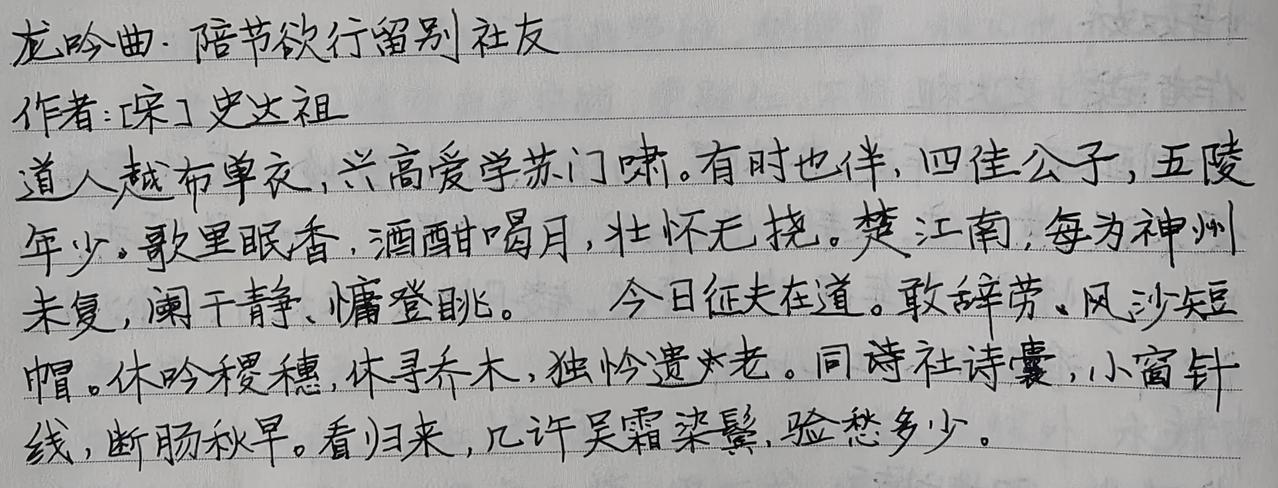 龙吟曲·陪节欲行留别社友
作者:[宋]史达祖
道人越布单衣,兴高爱学苏门啸。有时也伴,四佳公子,五陵
年少。歌里眠香,酒酣喝月,壮怀无挠。楚江南,每为神州
未复,阑干静、慵登眺。 今日征夫在道。敢辞劳、风沙短
帽。休吟稷穗,休寻乔木,独怜遗老。同诗社诗囊,小窗针
线,断肠秋早。看归来,几许吴霜染鬓,验愁多少。